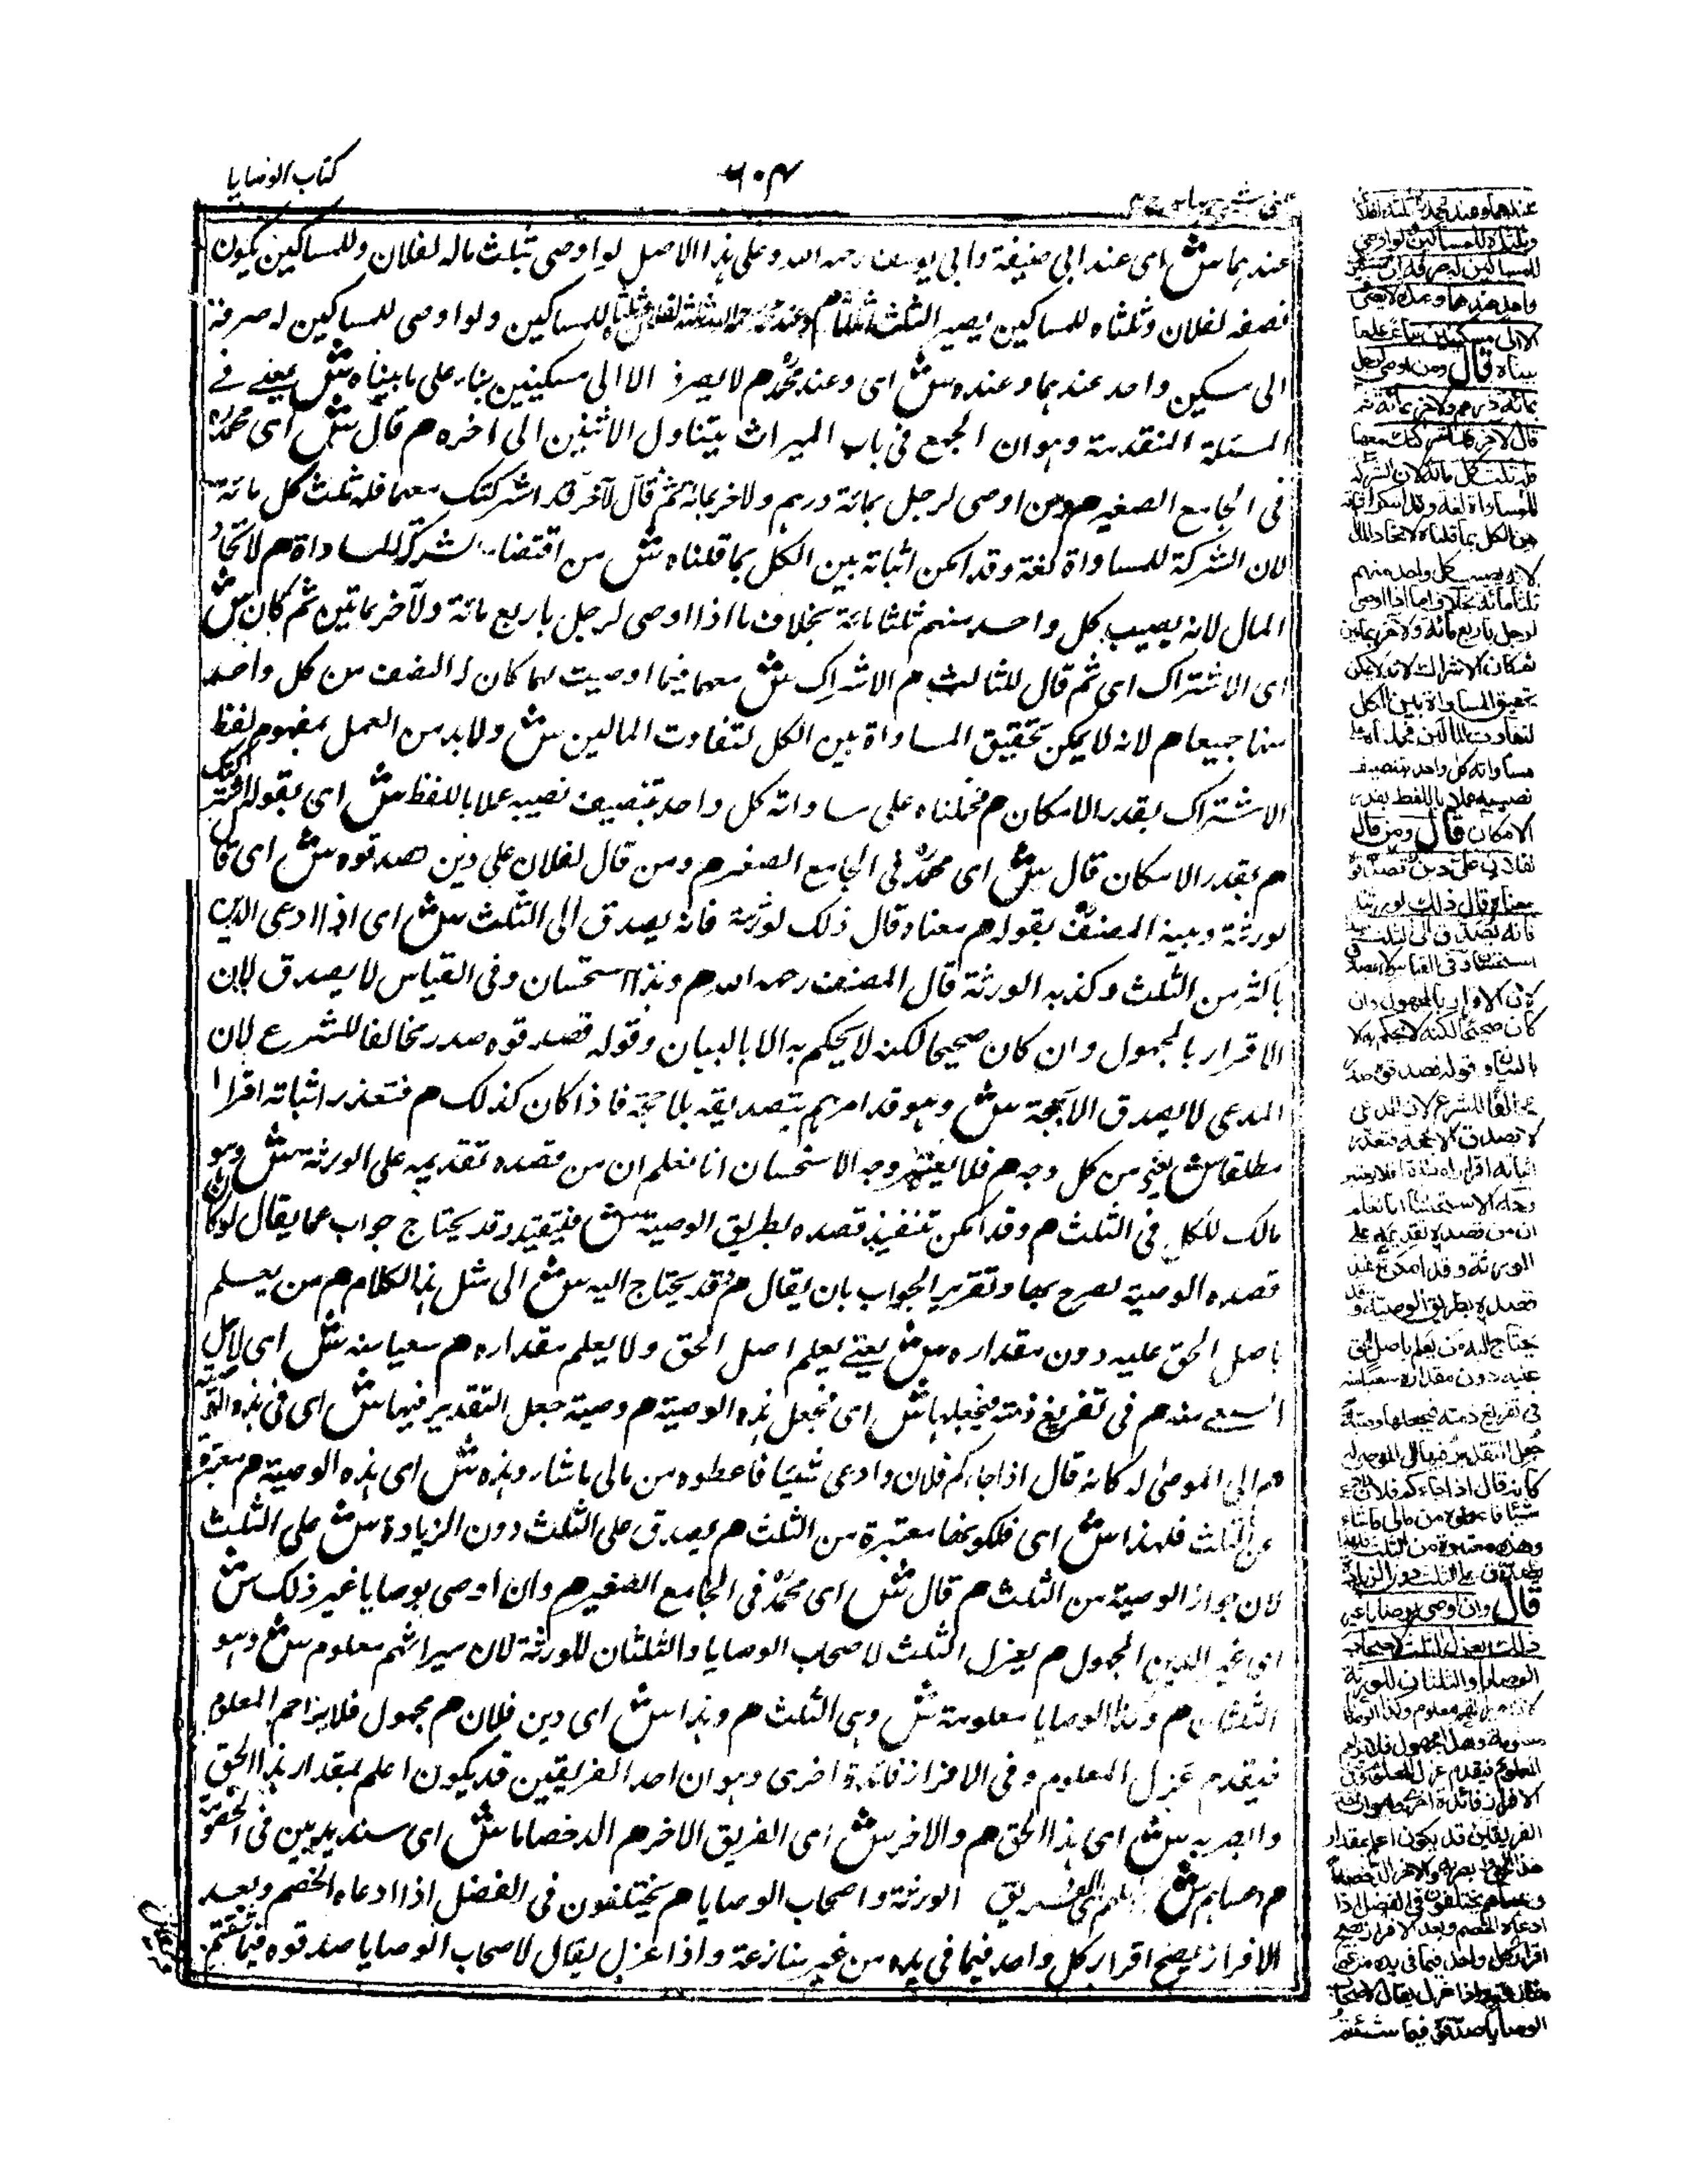 كتاب الوصايا
٦٠٣
عندهما ش اى عند ابي حنيفة وابي يوسف رحمه الله وعلى هذا الاصل لو اوصى بثلث ماله لفلان وللمساكين يكون
نصفه لفلان وثلثاه للمساكين يصير الثلث للمساكين ولو اوصى للمساكين له صرفه
الى مسكين واحد عندهما وعنده ش اى وعند محمد م لا يصرف الا الى مسكينين بناء على ما بيناه ش يعنى فى
المسئلة المتقدمة وهو ان الجمع فى باب الميراث يتناول الاثنين الى اخره م قال ش اى محمد
فى الجامع الصغير م ومن اوصى لرجل بمائة درهم ولاخر بمائة ثم قال لآخر قد اشركتك معهما فله ثلث كل مائة
لان الشركة للمساواة لغة وقد امكن اثباته بين الكل بما قلناه ش من اقتضاء الشركة المساواة م لاتحاد
المال لانه يصيب كل واحد منهم ثلثا مائة بخلاف ما اذا اوصى لرجل باربع مائة ولآخر بمائتين ثم كان ش
اى الاشتراك اى ثم قال للثالث م الاشراك ش معهما فيما اوصيت لهما كان له النصف من كل واحد
منهما جميعا م لانه لا يمكن تحقيق المساواة بين الكل لتفاوت المالين ش ولا بد من العمل بمفهوم لفظ
الاشتراك بقدر الامكان م فحملناه على مساواته كل واحد بتنصيف نصيبه عملا باللفظ ش اى بقوله اشركتك
م بقدر الامكان قال ش اى محمد فى الجامع الصغير م ومن قال لفلان على دين فصدقوه ش اى قال
لورثته وبينه المصنف بقوله م معناه قال ذلك لورثته فانه يصدق الى الثلث ش اى اذا ادعى الدين
باكثر من الثلث وكذبه الورثة قال المصنف رحمه الله م وهذا استحسان وفى القياس لا يصدق لان
الاقرار بالمجهول وان كان صحيحا لكنه لا يحكم به الا بالبيان وقوله فصدقوه صدر مخالفا للشرع لان
المدعى لا يصدق الا بحجة ش وهو قد امرهم بتصديقه بلا حجة فاذا كان كذلك م فتعذر اثباته اقرارا
مطلقا ش يعنى من كل وجه م فلا يعتبر وجه الاستحسان انا نعلم ان من قصده تقديمه على الورثة ش وهو
مالك للكل فى الثلث م وقد امكن تنفيذ قصده بطريق الوصية ش فيتقيد وقد يحتاج جواب عما يقال لو كان
قصده الوصية لصرح بها وتقرير الجواب بان يقال م قد يحتاج اليه ش الى مثل هذا الكلام م من يعلم
باصل الحق عليه دون مقداره ش يعنى يعلم اصل الحق ولا يعلم مقداره م سعيا منه ش اى لاجل
السعى منه م فى تفريغ ذمته فيجعلها ش اى فيجعل هذه الوصية م وصية جعل التقدير فيها ش اى فى هذه الوصية
م الى الموصى له كانه قال اذا جاءكم فلان وادعى شيئا فاعطوه من مالى ما شاء وهذه ش اى هذه الوصية م معتبرة
من الثلث فلهذا ش اى فلكونها معتبرة من الثلث م يصدق على الثلث دون الزيادة ش على الثلث
لان جواز الوصية من الثلث م قال ش اى محمد فى الجامع الصغير م وان اوصى بوصايا غير ذلك ش
اى غير الدين المجهول م يعزل الثلث لاصحاب الوصايا والثلثان للورثة لان ميراثهم معلوم ش وهو
الثلثان م وكذا الوصايا معلومة ش وهى الثلث م وهذا ش اى دين فلان م مجهول فلا يزاحم المعلوم
فيقدم عزل المعلوم وفى الافراز فائدة اخرى وهو ان احد الفريقين قد يكون اعلم بمقدار هذا الحق
وابصر به ش اى بهذا الحق م والاخر ش اى الفريق الاخر م الد خصاما ش اى شديدين فى الخصومة
م وعساهم ش الورثة واصحاب الوصايا م يختلفون فى الفضل اذا ادعاه الخصم وبعد
الافراز يصح اقرار كل واحد فيما فى يده من غير منازعة واذا عزل يقال لاصحاب الوصايا صدقوه فيما شئتم
للمساكين له صرفه الى مسكين
واحد عندهما وعنده لا يصرف
الا الى مسكينين بناء على ما
بيناه قال ومن اوصى لرجل
بمائة درهم ولاخر بمائة ثم
قال لآخر قد اشركتك معهما
فله ثلث كل مائة لان الشركة
للمساواة لغة وقد امكن اثباته
بين الكل بما قلناه لاتحاد المال
لانه يصيب كل واحد منهم
ثلثا مائة بخلاف ما اذا اوصى
لرجل باربع مائة ولآخر بمائتين
ثم كان الاشراك لانه لا يمكن
تحقيق المساواة بين الكل
لتفاوت المالين فحملناه على
مساواته كل واحد بتنصيف
نصيبه عملا باللفظ بقدر
الامكان قال ومن قال
لفلان على دين فصدقوه
معناه قال ذلك لورثته
فانه يصدق الى الثلث
استحسان وفى القياس لا يصدق
لان الاقرار بالمجهول وان
كان صحيحا لكنه لا يحكم به الا
بالبيان وقوله فصدقوه صدر
مخالفا للشرع لان المدعى
لا يصدق الا بحجة فتعذر
اثباته اقرارا مطلقا فلا يعتبر
وجه الاستحسان انا نعلم
ان من قصده تقديمه على
الورثة وقد امكن تنفيذ
قصده بطريق الوصية وقد
يحتاج اليه من يعلم باصل الحق
عليه دون مقداره سعيا منه
فى تفريغ ذمته فيجعلها وصية
جعل التقدير فيها الى الموصى له
كانه قال اذا جاءكم فلان وادعى
شيئا فاعطوه من مالى ما شاء
وهذه معتبرة من الثلث فلهذا
يصدق على الثلث دون الزيادة
قال وان اوصى بوصايا غير
ذلك يعزل الثلث لاصحاب
الوصايا والثلثان للورثة
لان ميراثهم معلوم وكذا الوصايا
معلومة وهذا مجهول فلا يزاحم
المعلوم فيقدم عزل المعلوم وفى
الافراز فائدة اخرى وهو ان احد
الفريقين قد يكون اعلم بمقدار
هذا الحق وابصر به والاخر الد خصاما
وعساهم يختلفون فى الفضل اذا
ادعاه الخصم وبعد الافراز يصح
اقرار كل واحد فيما فى يده من غير
منازعة واذا عزل يقال لاصحاب
الوصايا صدقوه فيما شئتم